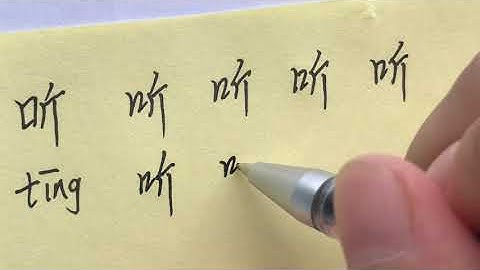 听 听 听 听 听
tīng 听